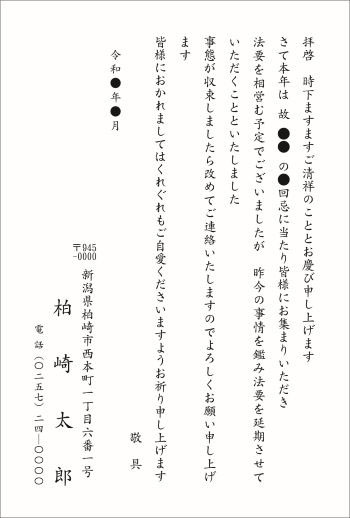 拝啓　時下ますますご清祥のこととお慶び申し上げます
さて本年は 故 ●● の●回忌に当たり皆様にお集まりいただき
法要を相営む予定でございましたが　昨今の事情を鑑み法要を延期させて
いただくことといたしました
事態が収束しましたら改めてご連絡いたしますのでよろしくお願い申し上げ
ます
皆様におかれましてはくれぐれもご自愛くださいますようお祈り申し上げます
敬具
令和●年●月
〒945-0000
新潟県柏崎市西本町一丁目六番一号
柏崎太郎
電話（〇二五七）二四―〇〇〇〇